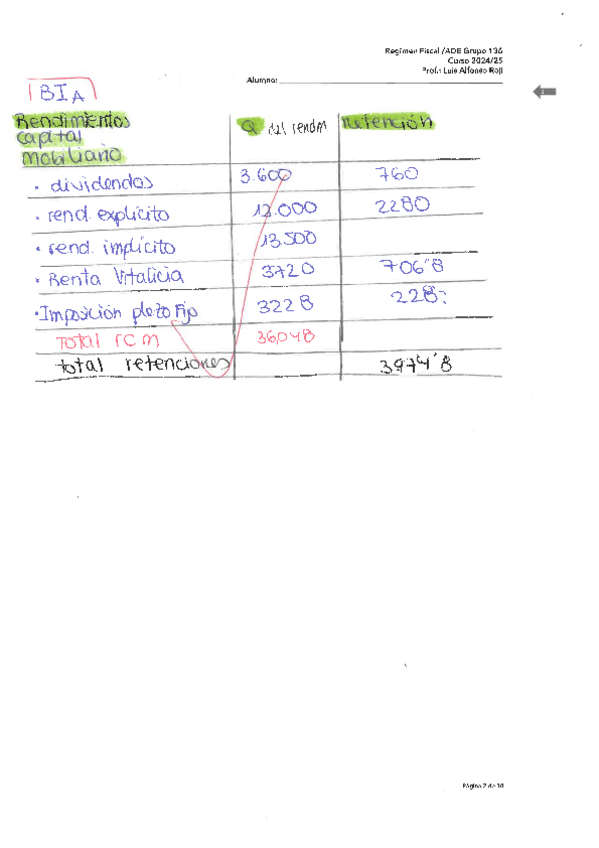 Régimen Fiscal /ADE Grupo 136
Curso 2024/25
Prof.: Luis Alfonso Roji
Alumno:
BIA
Rendimientos capital mobiliario
Q del rendm
Retención
· dividendos 3.600 760
· rend. explícito 12.000 2280
· rend. implícito 13.500
· Renta Vitalicia 3720 706'8
· Imposición plazo Fijo 3228 228:
TOTAL rcm 36048
total retenciones 3974'8
Página 7 de 10